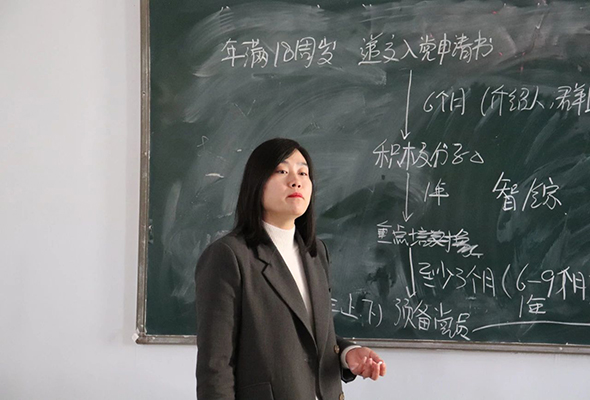 年满18周岁 递交入党申请书
6个月(介绍人,群
积极分子
1年 智慧
重点培
至少3个月(6-9个月
上下) 预备党员 1年